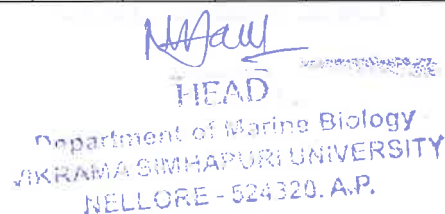 HEAD
Department of Marine Biology
VIKRAMA SIMHAPURI UNIVERSITY
NELLORE - 524320. A.P.